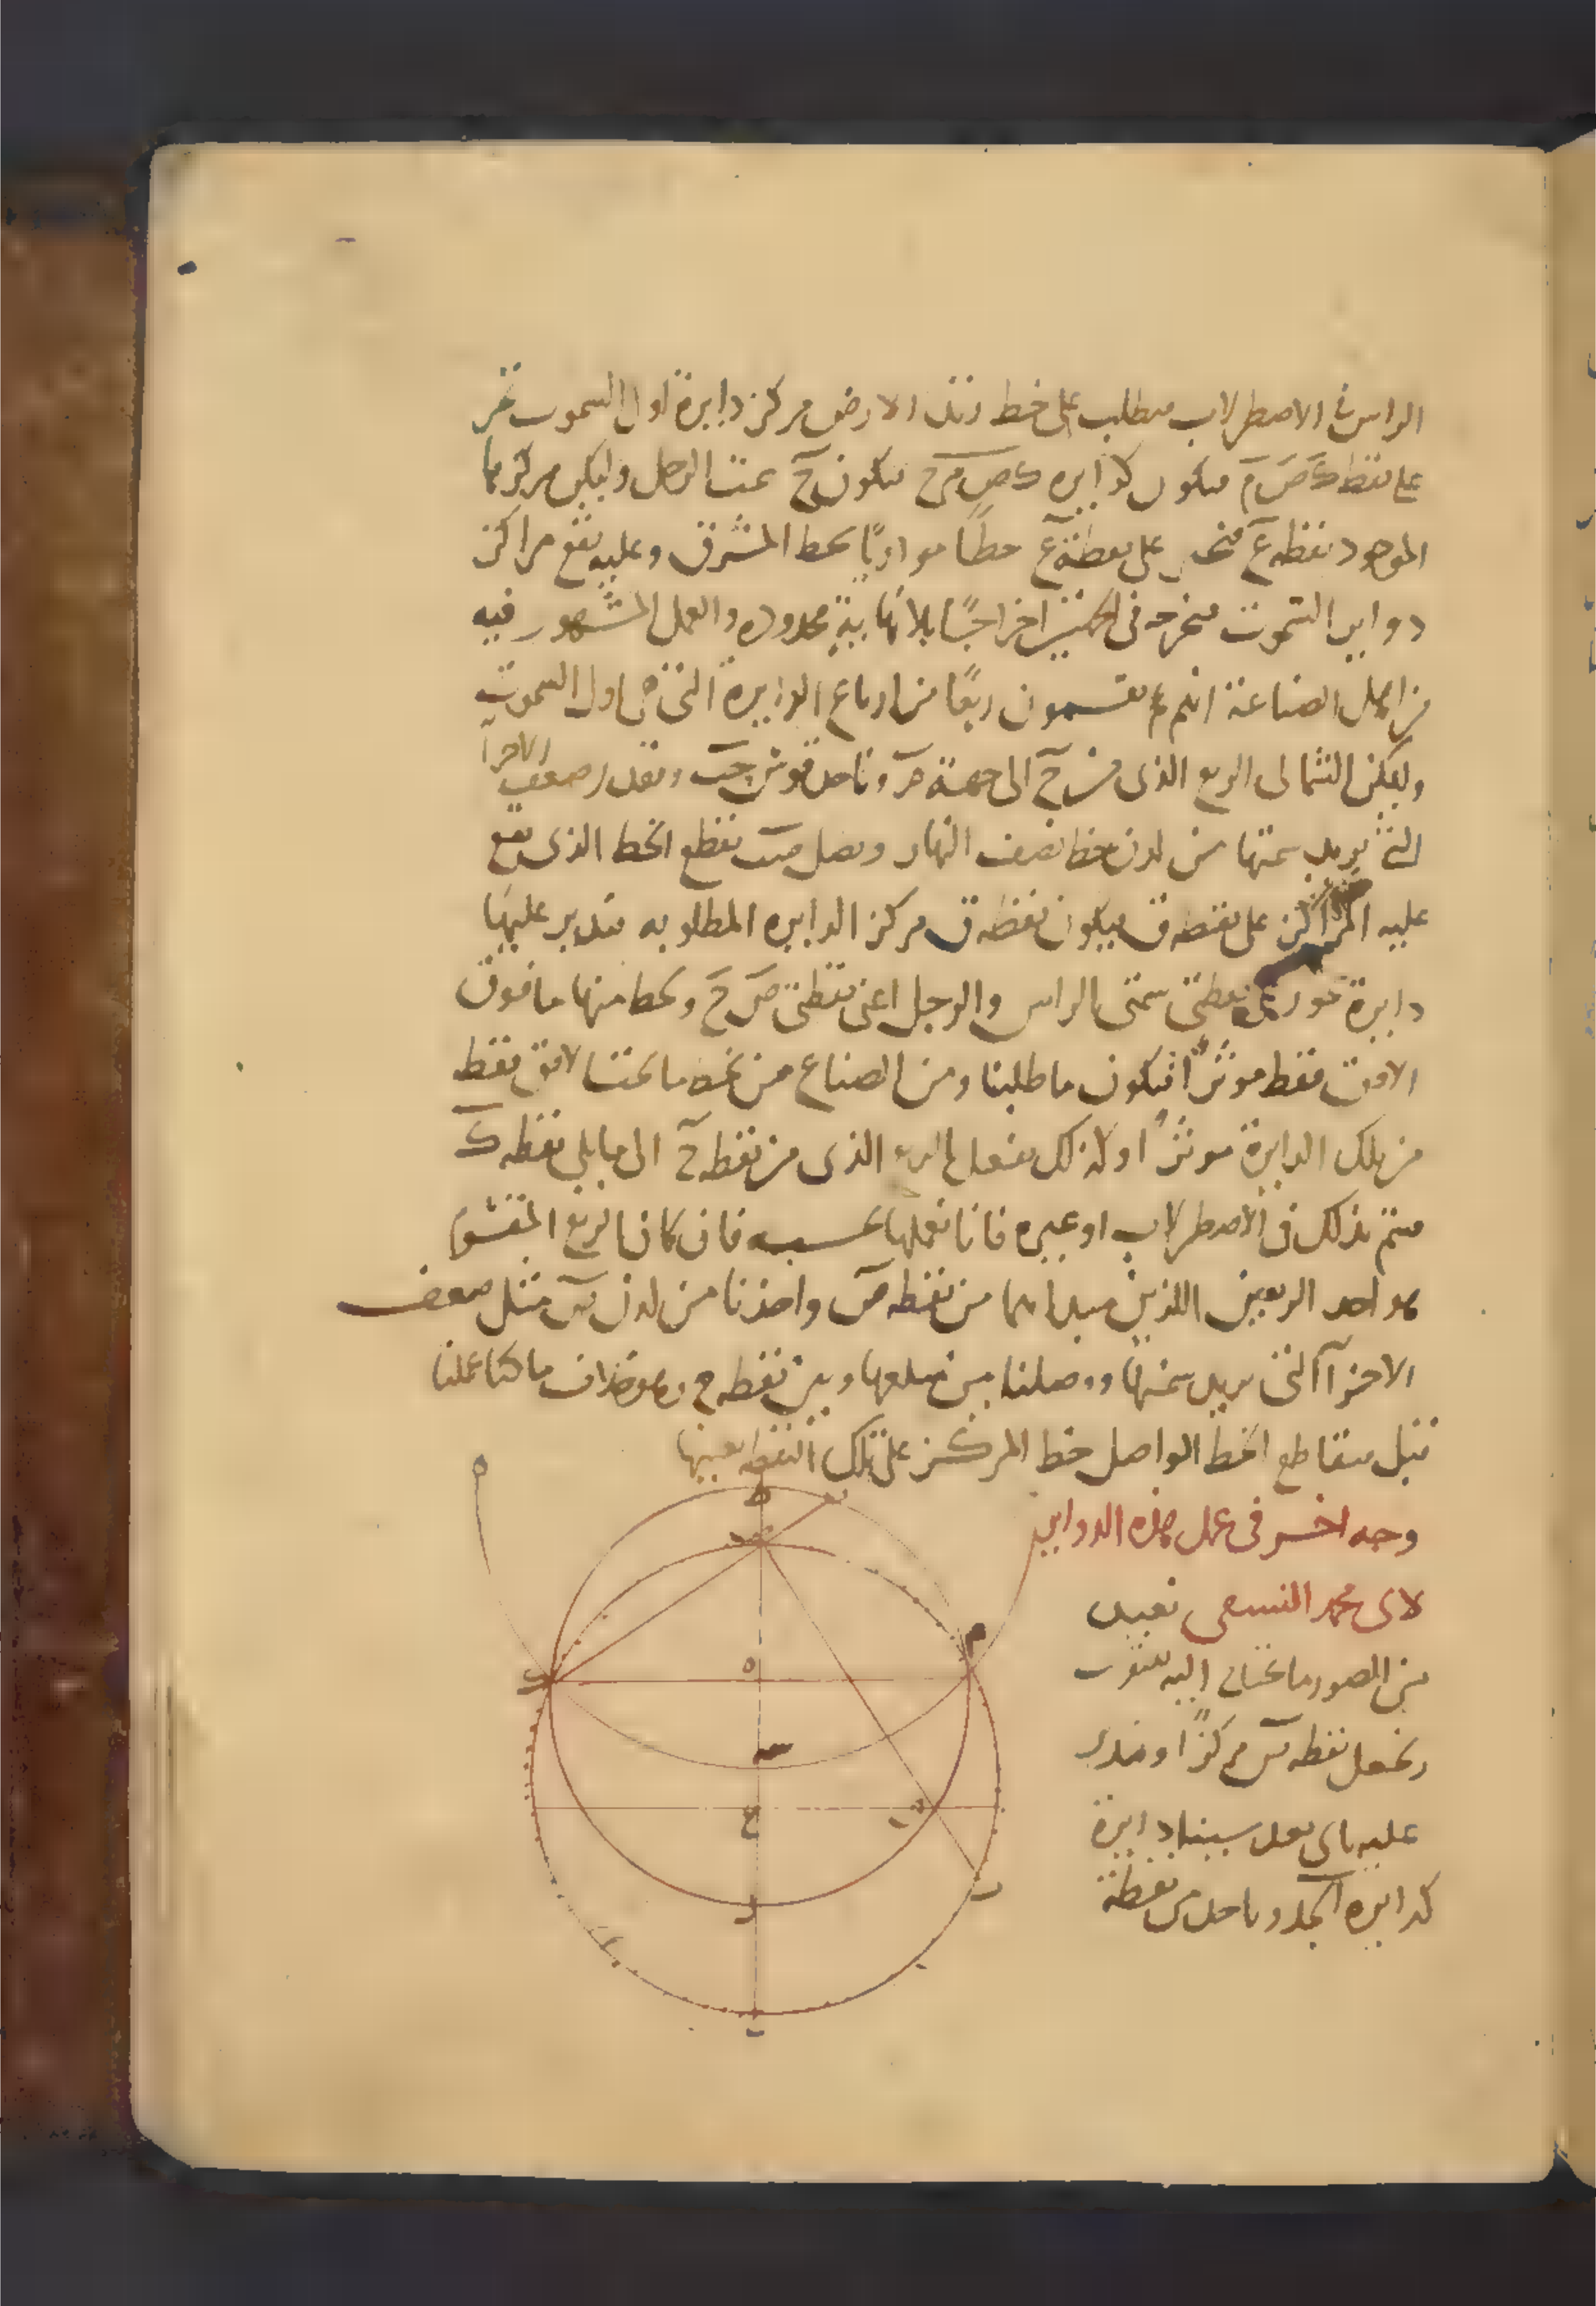 الراس فى الاصطرلاب فيطلب على خط وتد الارض مركز دايرة اول السموت تمر
على نقط ك ص م فيكون كدايره ك ص م ح فيكون ح سمت الرجل وليكن مركزها
الموجود نقطه ع فنخرج على نقطة ع خطا موازيا لخط المشرق وعليه تقع مراكز
دواير السموت فنخرجه فى الجهتين اخراجا بلا نهاية محدوده والعمل المشهور فيه
من اهل الصناعة انهم يقسمون ربعا من ارباع الدايرة التى هى اول السموت
وليكن الشمالى الربع الذى من ح الى جهة م وناخذ قوس ح ب بقدر ضعف الاجزآ
التى نريد سمتها من لدن خط نصف النهار ونصل ص ب يقطع الخط الذى تقع
عليه المراكز على نقطه ق فيكون نقطه ق مركز الدايره المطلوبه فندير عليها
دايرة تجوز على نقطتى سمتى الراس والرجل اعنى نقطتى ص ح ونخط منها ما فوق
الافق فقط موثرا فيكون ما طلبنا ومن الصناع من يخط ما تحت الافق فقط
من تلك الدايرة موثرا وكذلك نفعل الذى من نقطه ح الى ما يلى نقطه ك
فيتم بذلك فى الاصطرلاب او غيره فانا نعملها بحسبه فان كان الربع المقسوم
هو احد الربعين اللذين مبداهما من نقطه ص واخذنا من لدن ص مثل ضعف
الاجزآ التى نريد سمتها ووصلنا بين مبلغها وبين نقطه ح وهو خلاف ما كنا عملنا
قبل فيقاطع الخط الواصل خط المركز على تلك النقطه بعينها
وجه اخر فى عمل هذه الدواير
لابى محمد السيفى نعيد
من الصور ما نحتاج اليه
ونجعل نقطه س مركزا وندير
عليه باى بعد شينا دايرة
كدايره وناخذ من نقطة
ه
ط
ص
م
ك
ه
س
ع
ق
ل
ب
ح